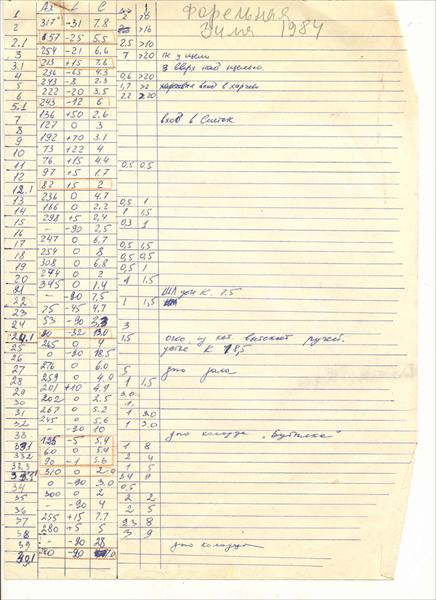 Форельная
Зима 1984
Аз L С
1 317 -31 7.8 2
2 657 -25 5.5 >16
2.1 254 -21 6.6 2.5 >10
3 213 +15 7.6 7 >20 ПК у щели
3.1 236 -65 4.3 вверх над щелью.
4 243 -8 2.3 0,6 >20
5 222 -20 3.5 1,7 >2 вход в
6 243 -12 6 2.2 >20
5.1
7 136 +50 2.6 вход в
8 127 0 3
9 192 +70 3.1
10 73 +22 4
11 76 +15 4.4 0,5 0,5
12 97 +5 1.7
12.1 82 +15 2
13 236 0 4.7 0,5 1
14 166 0 2.2 1 1,5
15 298 +5 2,4 0,3 1
16 - -90 2,5
17 247 0 6.7 0,5 1,5
18 254 0 8 0,5 0,5
19 308 0 6,8 0,5 1
20 274 0 2 1 1,5
21 345 0 1.4
22 - -90 7,5 К. 7.5
23 75 -45 4.7 1 1,5
24 53 -90 3
24.1 90 -32 13.0 1,5 ручей.
25 265 0 4 К 18,5
26 0 -90 18.5
27 276 0 6.0 5 дно зала
28 259 0 4.0 1 1,5
29 201 +10 4,9 3.0
30 202 0 2,5 1.
31 267 0 5.2 1 3.0
32 245 0 5.6 1 3.0
33 - -90 10 дно колодца "Бутылка"
33.1 125 -5 5.4 1 8
33.2 60 0 5.4 2 4
33.3 90 -1 5.6 1 5
310 0 2.0 3.4 9
34 0 -90 3.0 0,5
35 300 0 2 2 2
36 - -90 4 2 5
37 255 +15 7.7 2.3 8
38 280 +5 5 3 9
39 - -90 28 дно колодца
39.1 280 -20